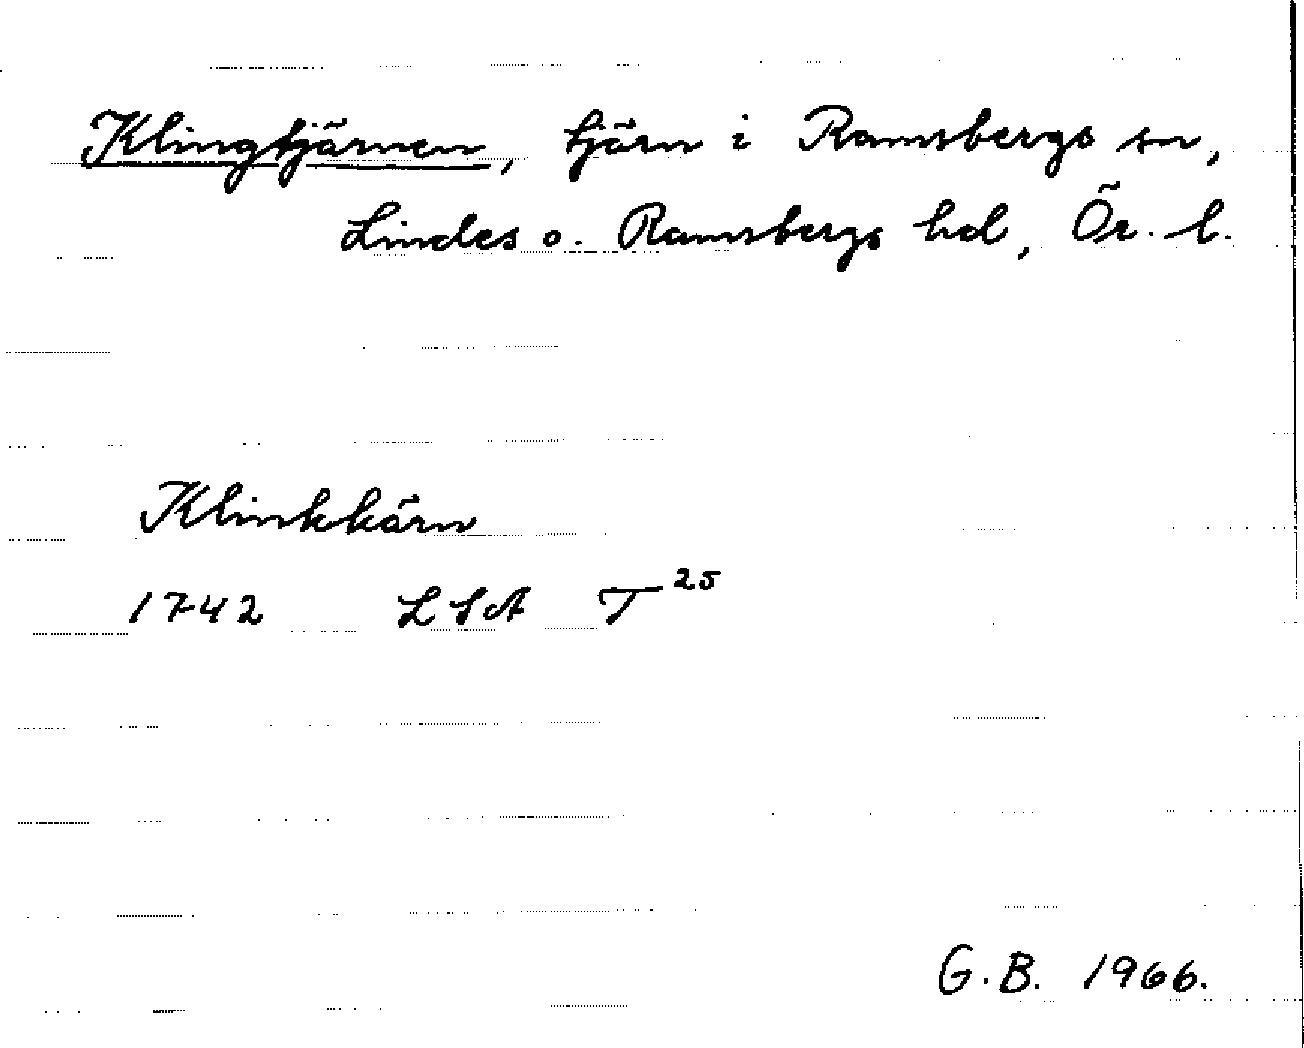 Klingtjärnen, tjärn i Ramsbergs sn,
Lindes o. Ramsbergs hd, Ör. l.
Klinkkärn
1742 LSA T 25
G.B. 1966.